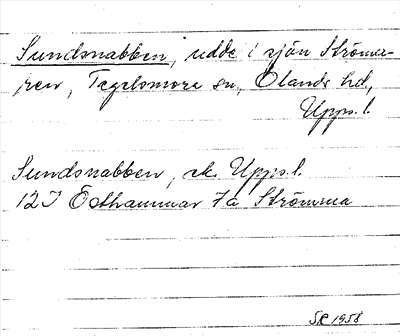 Sundsnabben, udde i sjön Ströma-
ren, Tegelsmora sn, Olands hd,
Upps. l.
Sundsnabben, ek. Upps. l.
12I Östhammar 7a Strömma
SR 1958